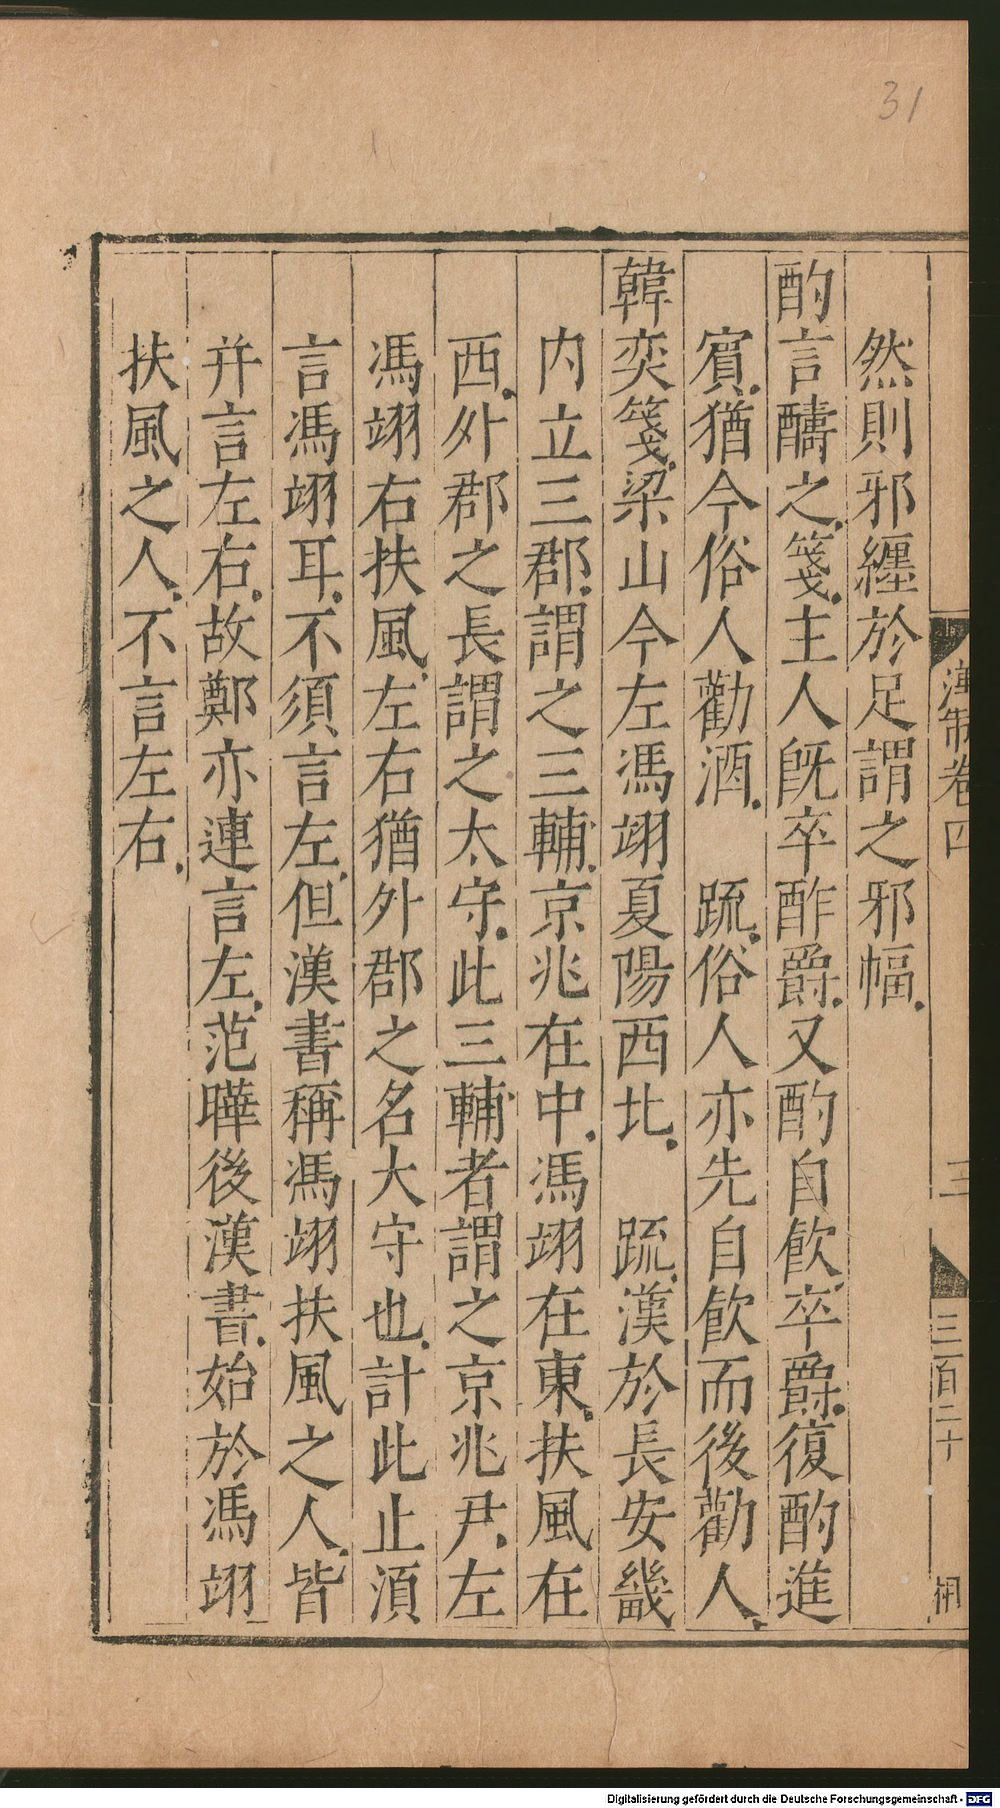 31
漢制卷四
三
三百二十
然則邪纏於足謂之邪幅
酌言醻之箋主人旣卒酢爵又酌自飮卒爵復酌進
賓猶今俗人勸酒　疏俗人亦先自飮而後勸人
韓奕箋梁山今左馮翊夏陽西北　疏漢於長安畿
內立三郡謂之三輔京兆在中馮翊在東扶風在
西外郡之長謂之太守此三輔者謂之京兆尹左
馮翊右扶風左右猶外郡之名大守也計此止湏
言馮翊耳不須言左但漢書稱馮翊扶風之人皆
幷言左右故鄭亦連言左范曄後漢書始於馮翊
扶風之人不言左右
Digitalisierung gefördert durch die Deutsche Forschungsgemeinschaft - DFG